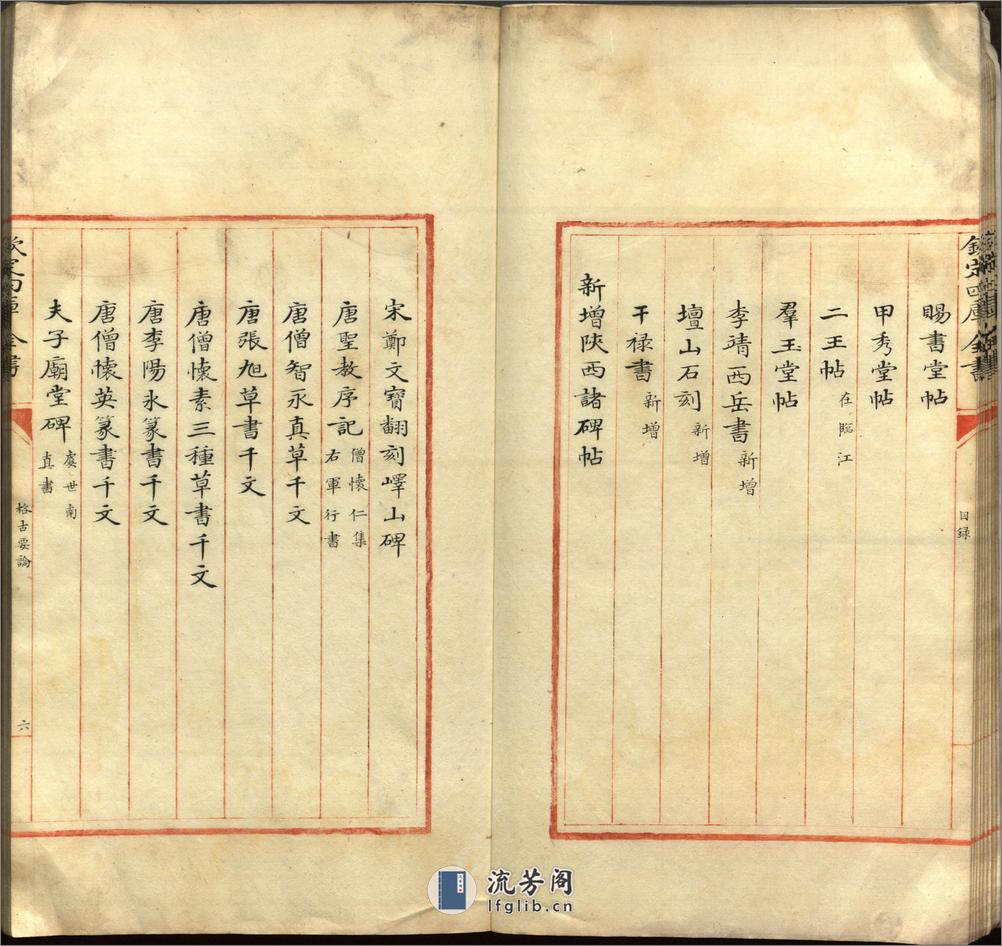 欽定四庫全書
目録
賜書堂帖
甲秀堂帖
二王帖 在臨江
羣玉堂帖
李靖西岳書 新增
壇山石刻 新增
干禄書 新增
新增陜西諸碑帖
宋鄭文寶翻刻嶧山碑
唐聖教序記 僧懷仁集右軍行書
唐僧智永真草千文
唐張旭草書千文
唐僧懷素三種草書千文
唐李陽氷篆書千文
唐僧懷英篆書千文
夫子廟堂碑 虞世南真書
欽定四庫全書
格古要論
六
流芳阁
lfglib.cn